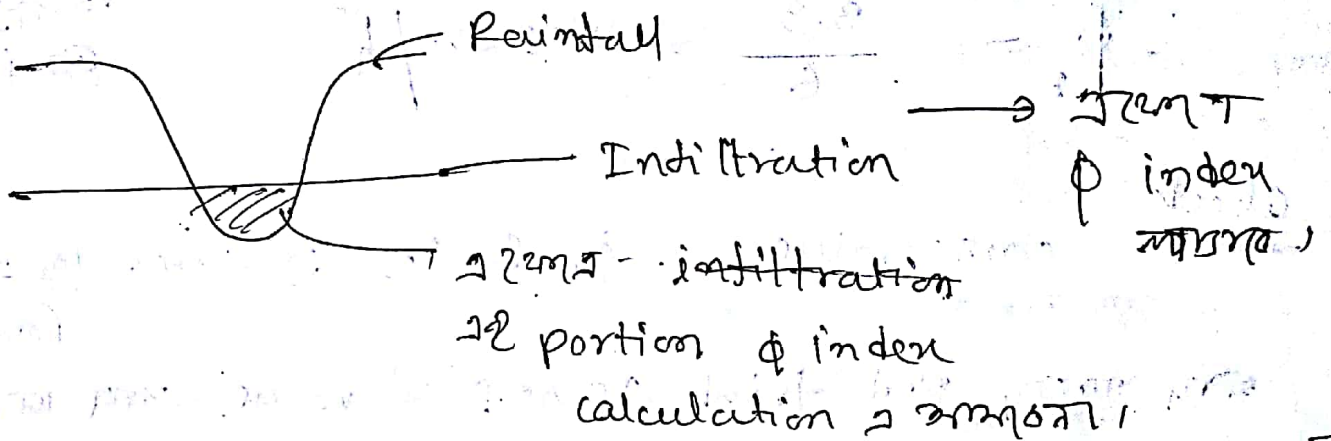 Rainfall
Infiltration
এখানে
φ index
লাগবে,
এখানে infiltration
এই portion φ index
calculation এ আসবেনা।